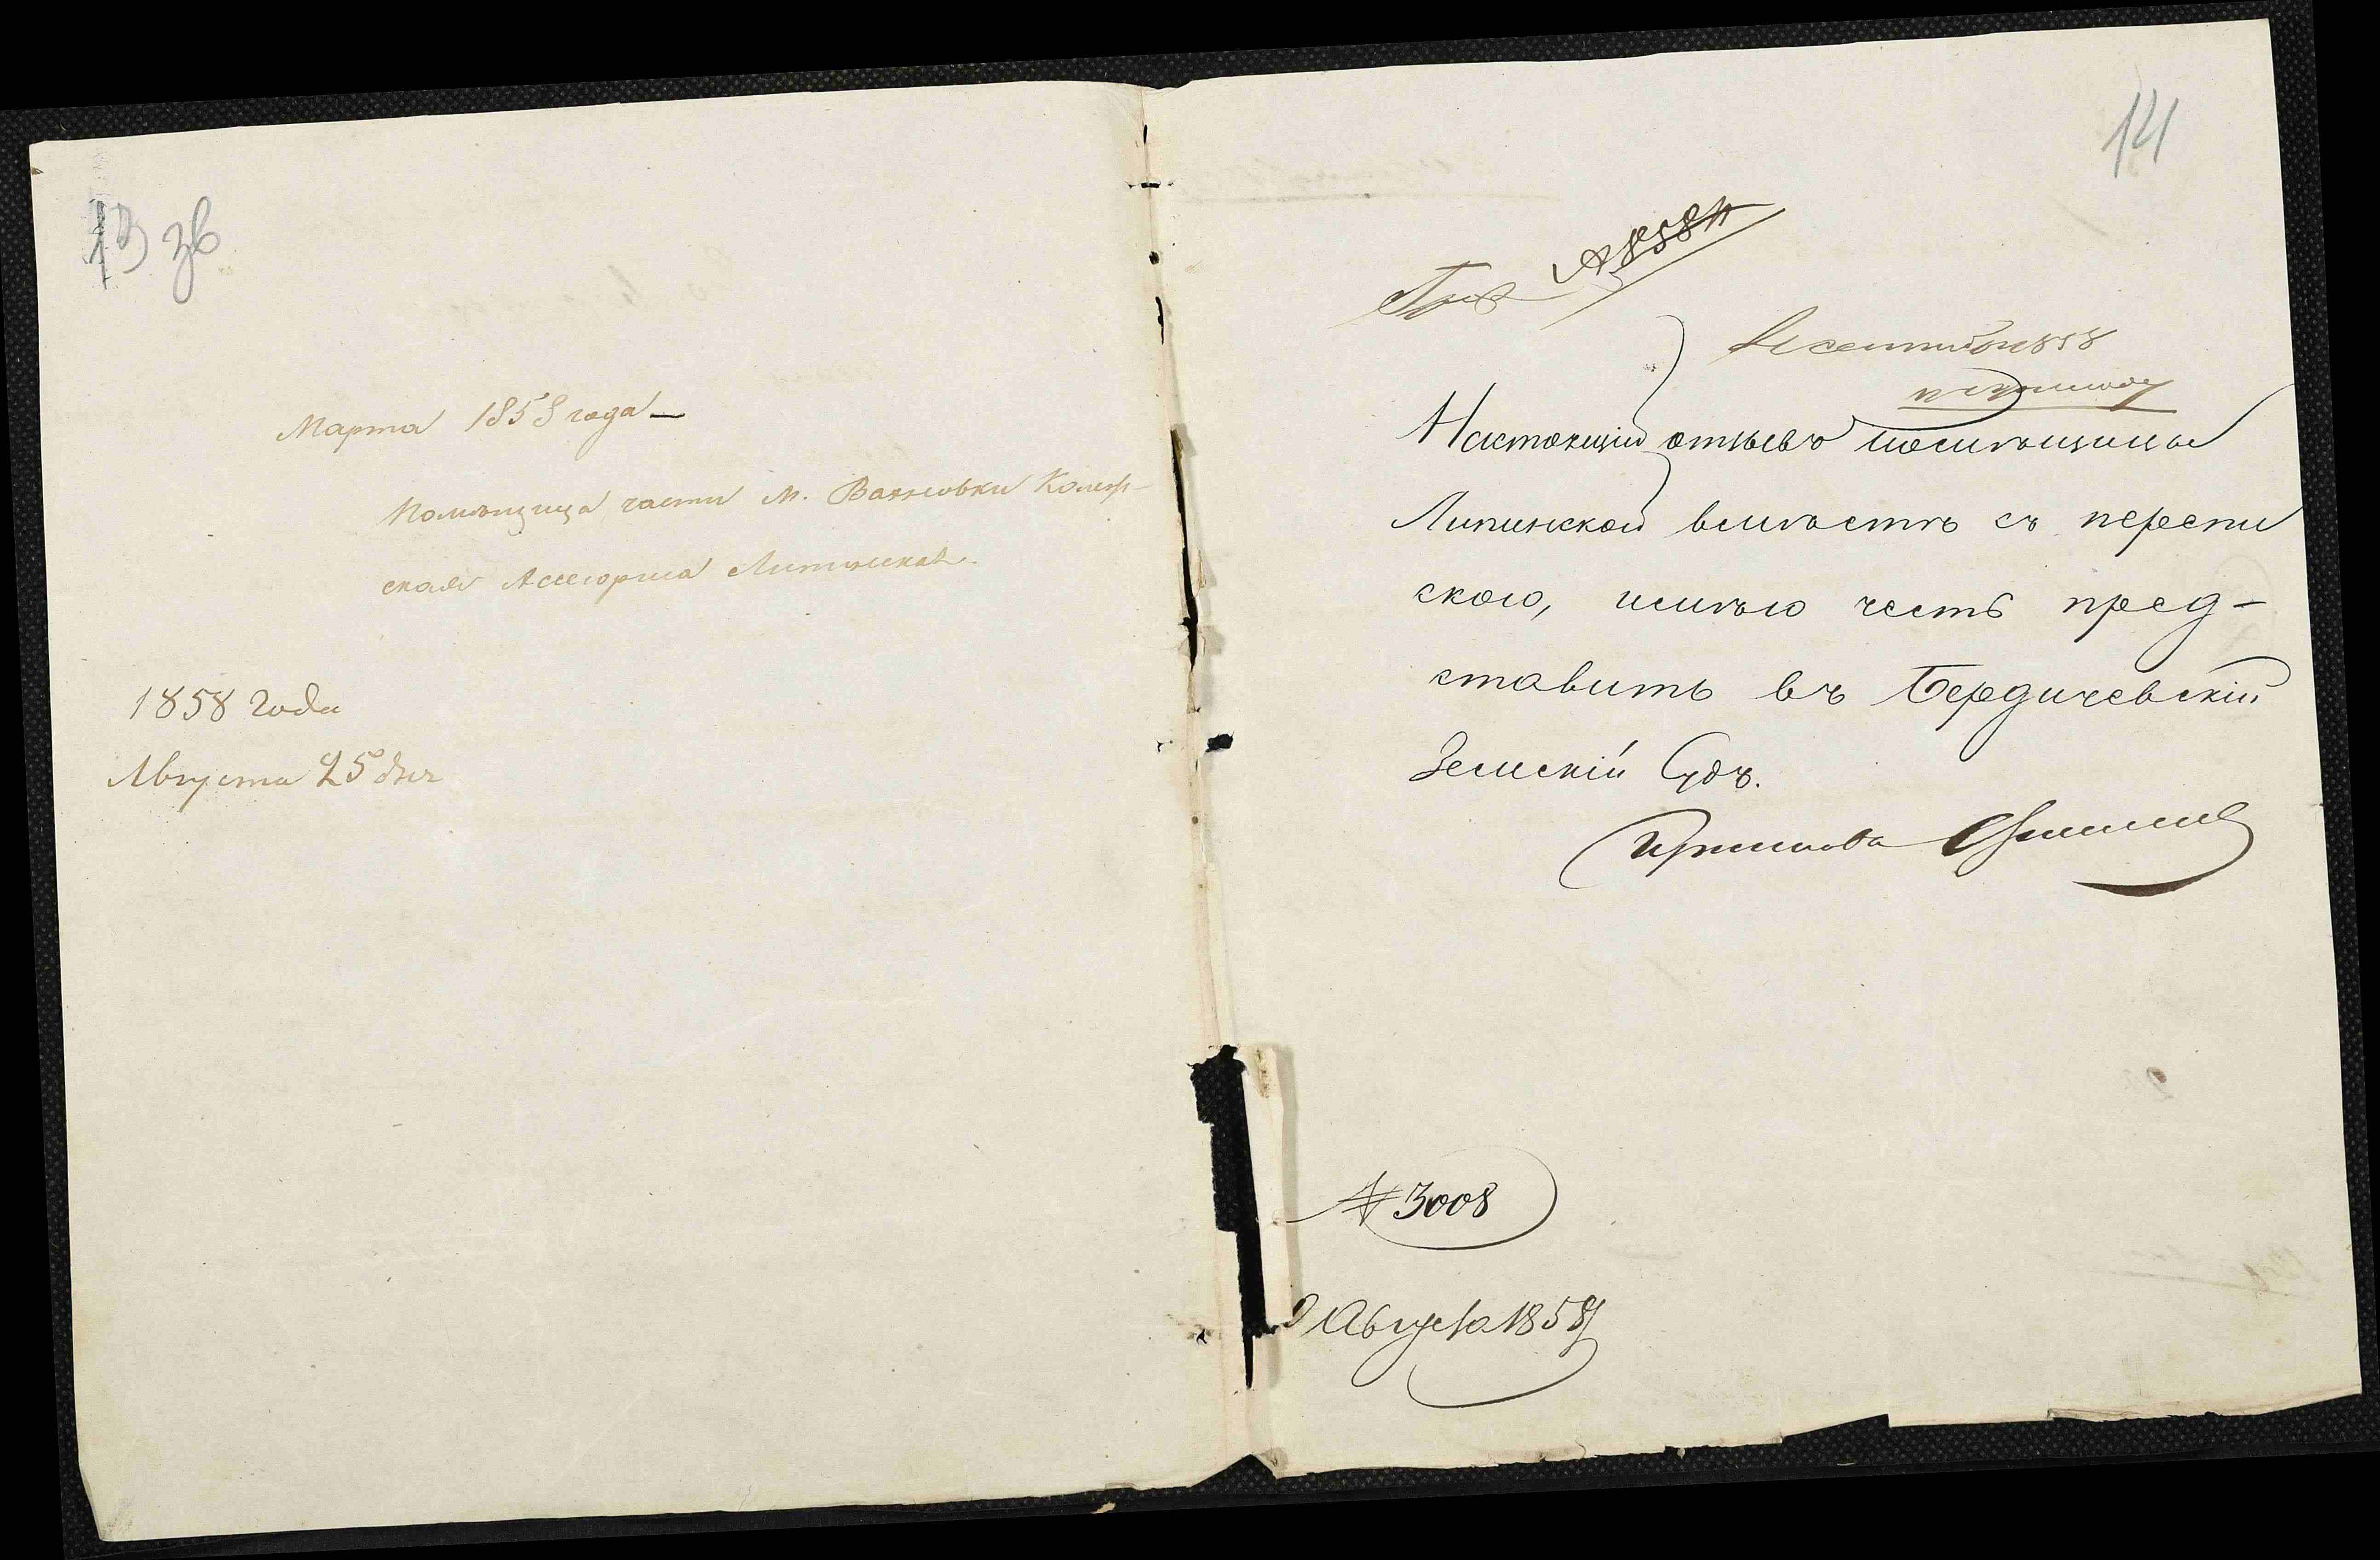 13 зв
Марта 1858 года —
Помѣщица части м. Вахновки Колеж-
ская Ассесорша Липинская.
1858 года
Августа 25 дня
14
№ 8584
сентября 1858
Настоящій отзывъ помѣщицы
Липинской вмѣстѣ съ перепи
скою, имѣю честь пред-
ставить въ Бердичевскій
Земскій Судъ.
Пристава
№ 3008
Августа 1858